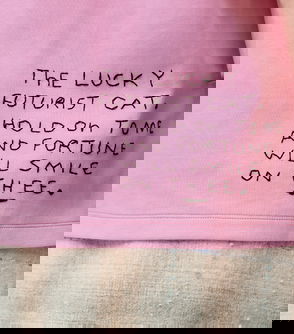 THE LUCKY
FUTURIST CAT,
HOLD OH TAME
AND FORTUNE
WILL SMILE
ON THEE.